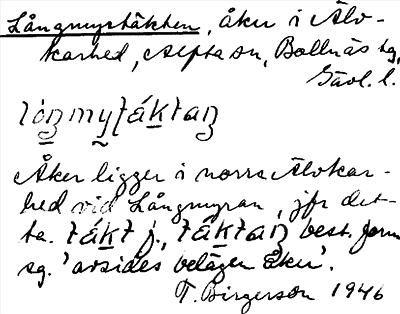 Långmyrtäkten, åker i Älv-
karhed, Alfta sn, Bollnäs tg,
Gävl. l.
lóŋmytáktaŋ
Åker ligger i norra Älvkar-
hed vid Långmyran, jfr det-
ta. tákt f., táktaŋ best. form
sg. 'avsides belägen åker'.
T. Birgerson 1946